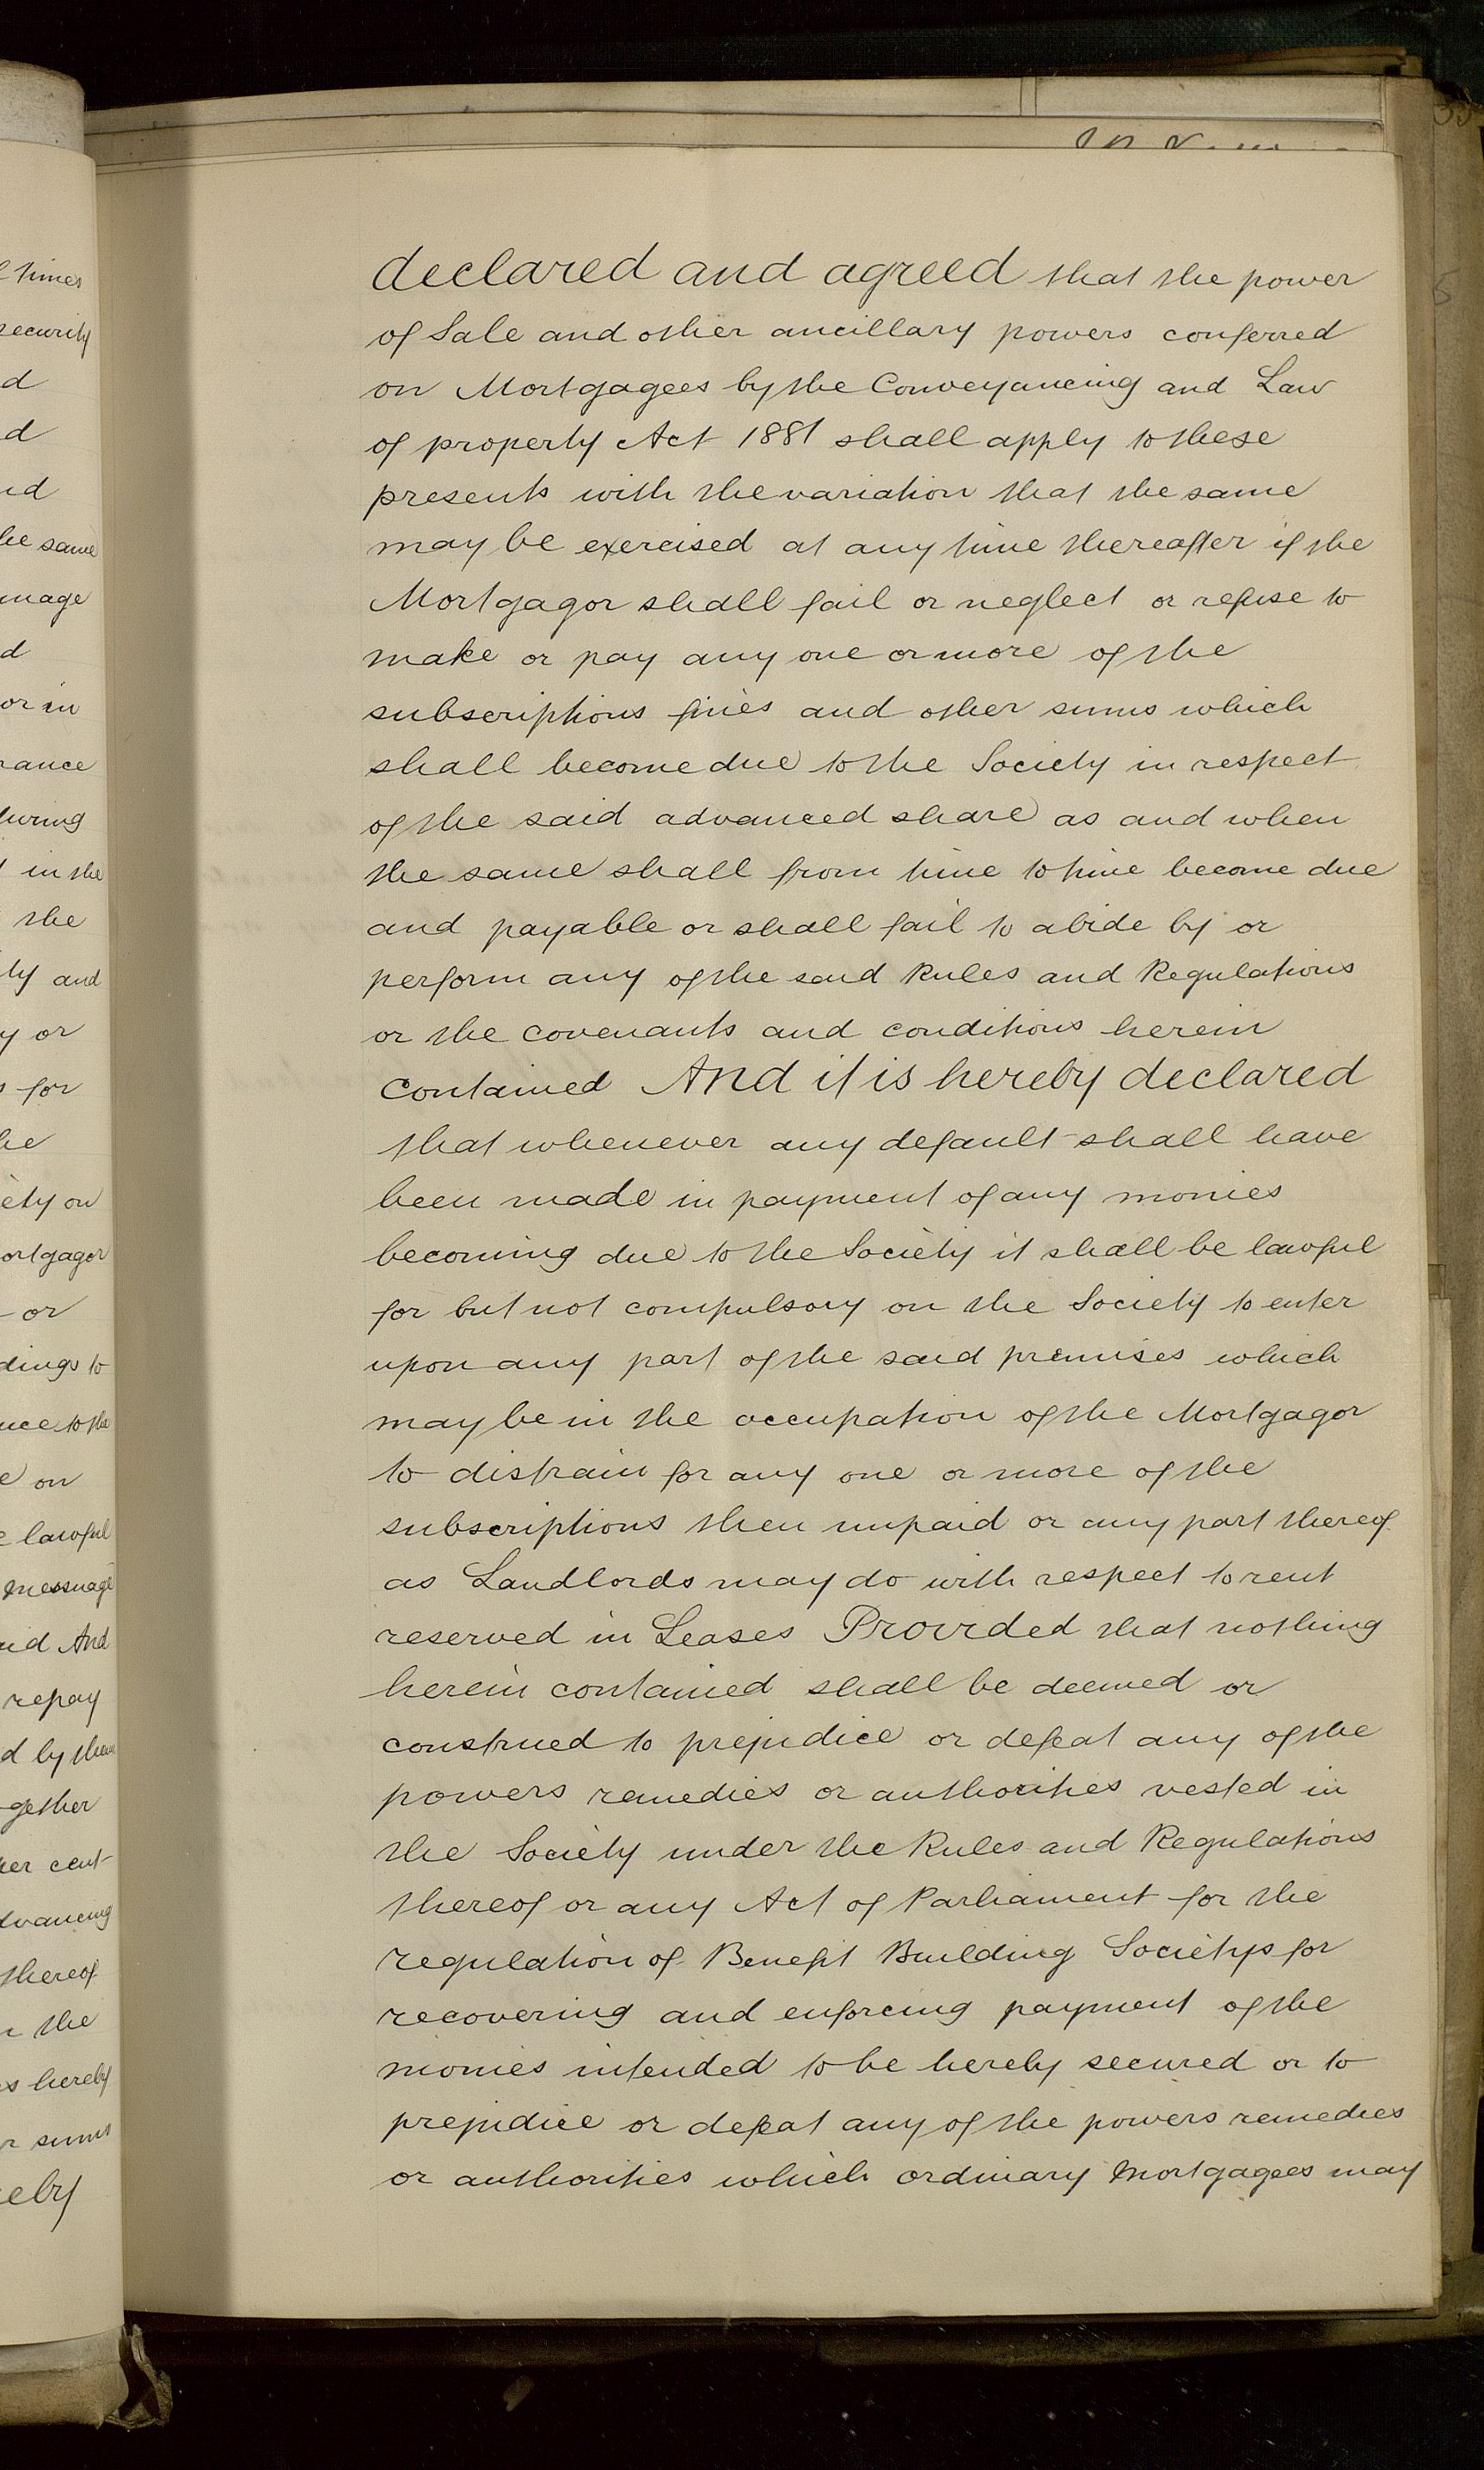 declared and agreed that the power
of Sale and other ancillary powers conferred
on Mortgagees by the Conveyancing and Law
of property Act 1881 shall apply to these
presents with the variation that the same
may be exercised at any time thereafter if the
Mortgagor shall fail or neglect or refuse to
make or pay any one or more of the
subscriptions fines and other sums which
shall become due to the Society in respect
of the said advanced share as and when
the same shall from time to time become due
and payable or shall fail to abide by or
perform any of the said Rules and Regulations
or the covenants and conditions herein
contained And it is hereby declared
that whenever any default shall have
been made in payment of any monies
becoming due to the Society it shall be lawful
for but not compulsory on the Society to enter
upon any part of the said premises which
may be in the occupation of the Mortgagor
to distrain for any one or more of the
subscriptions then unpaid or any part thereof
as Landlords may do with respect to rent
reserved in Leases Provided that nothing
herein contained shall be deemed or
construed to prejudice or defeat any of the
powers remedies or authorities vested in
the Society under the Rules and Regulations
thereof or any Act of Parliament for the
regulation of Benefit Building Societys for
recovering and enforcing payment of the
monies intended to be hereby secured or to
prejudice or defeat any of the powers remedies
or authorities which ordinary Mortgagees may